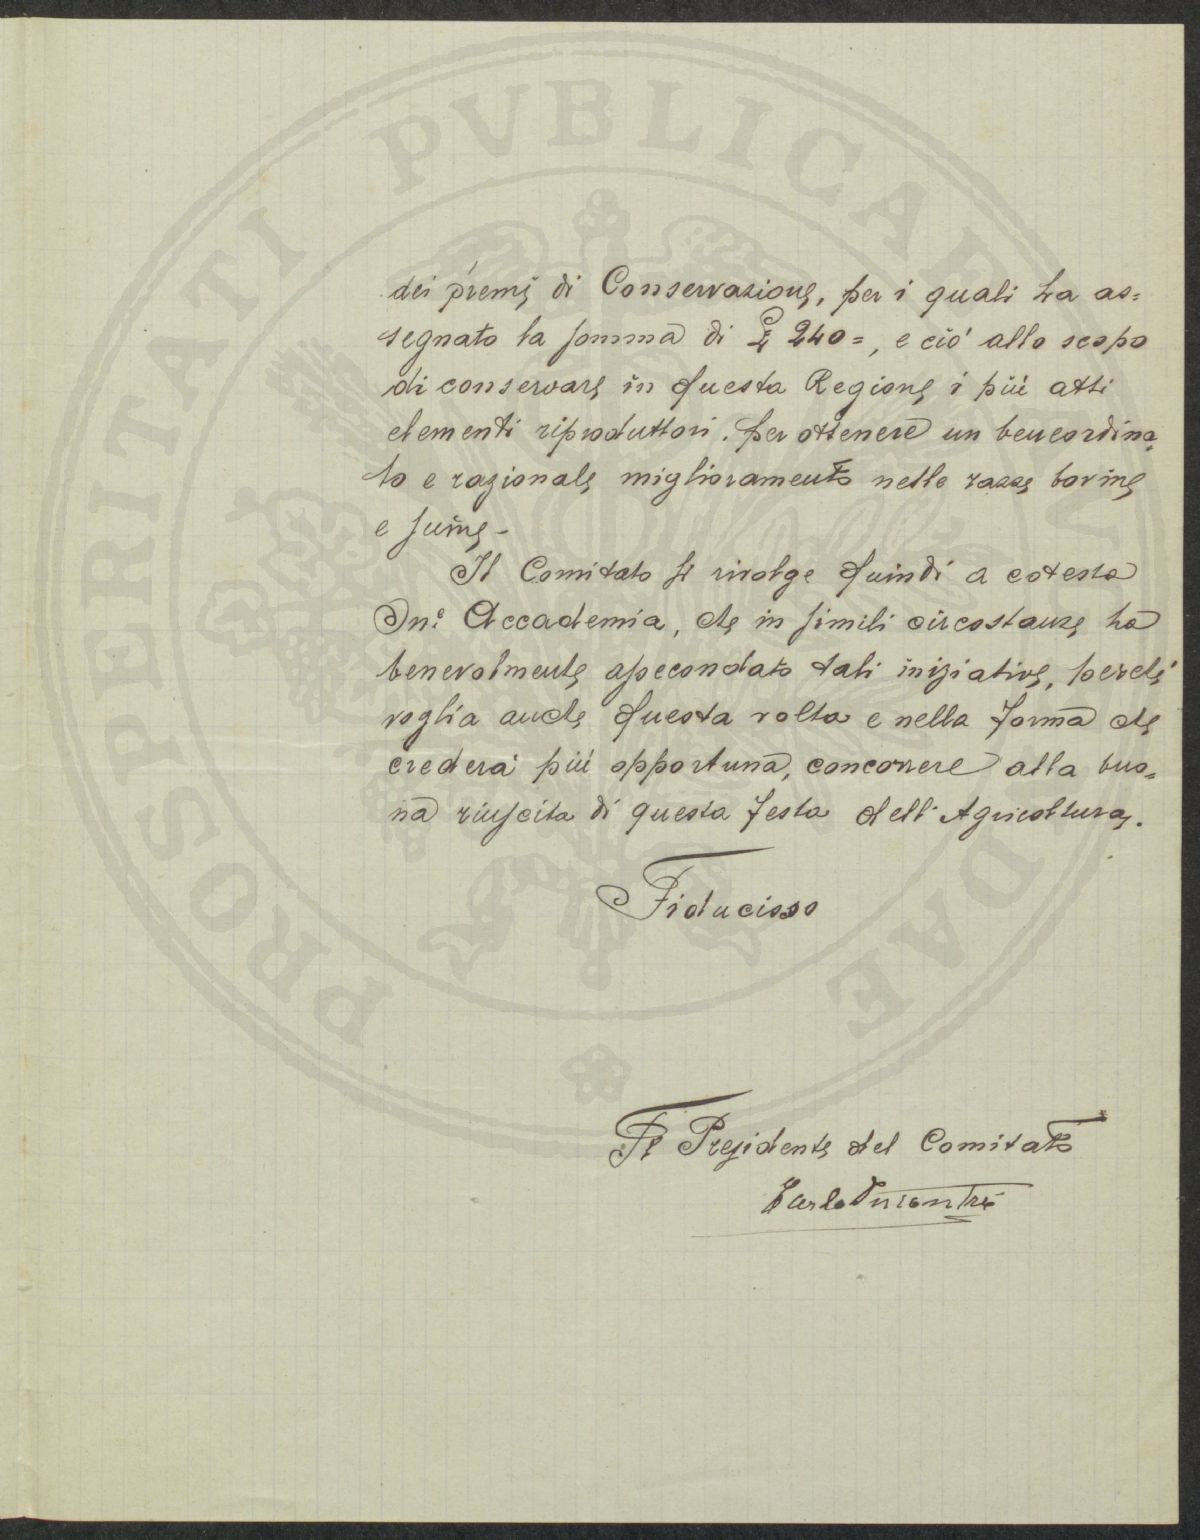 dei premi di Conservazione, per i quali ha as=
segnato la somma di £ 240=, e ciò allo scopo
di conservare in questa Regione i più atti
elementi riproduttori, per ottenere un beneordina=
to e razionale miglioramento nelle razze bovine
e suine -
Il Comitato si rivolge quindi a cotesta
On: Accademia, che in simili circostanze ha
benevolmente assecondato tali iniziative, perchè
voglia anche questa volta e nella forma che
crederà più opportuna, concorrere alla buo=
na riuscita di questa festa dell'Agricoltura.
Fiducioso
Il Presidente del Comitato
Carlo
PROSPERITATI PVBLICAE